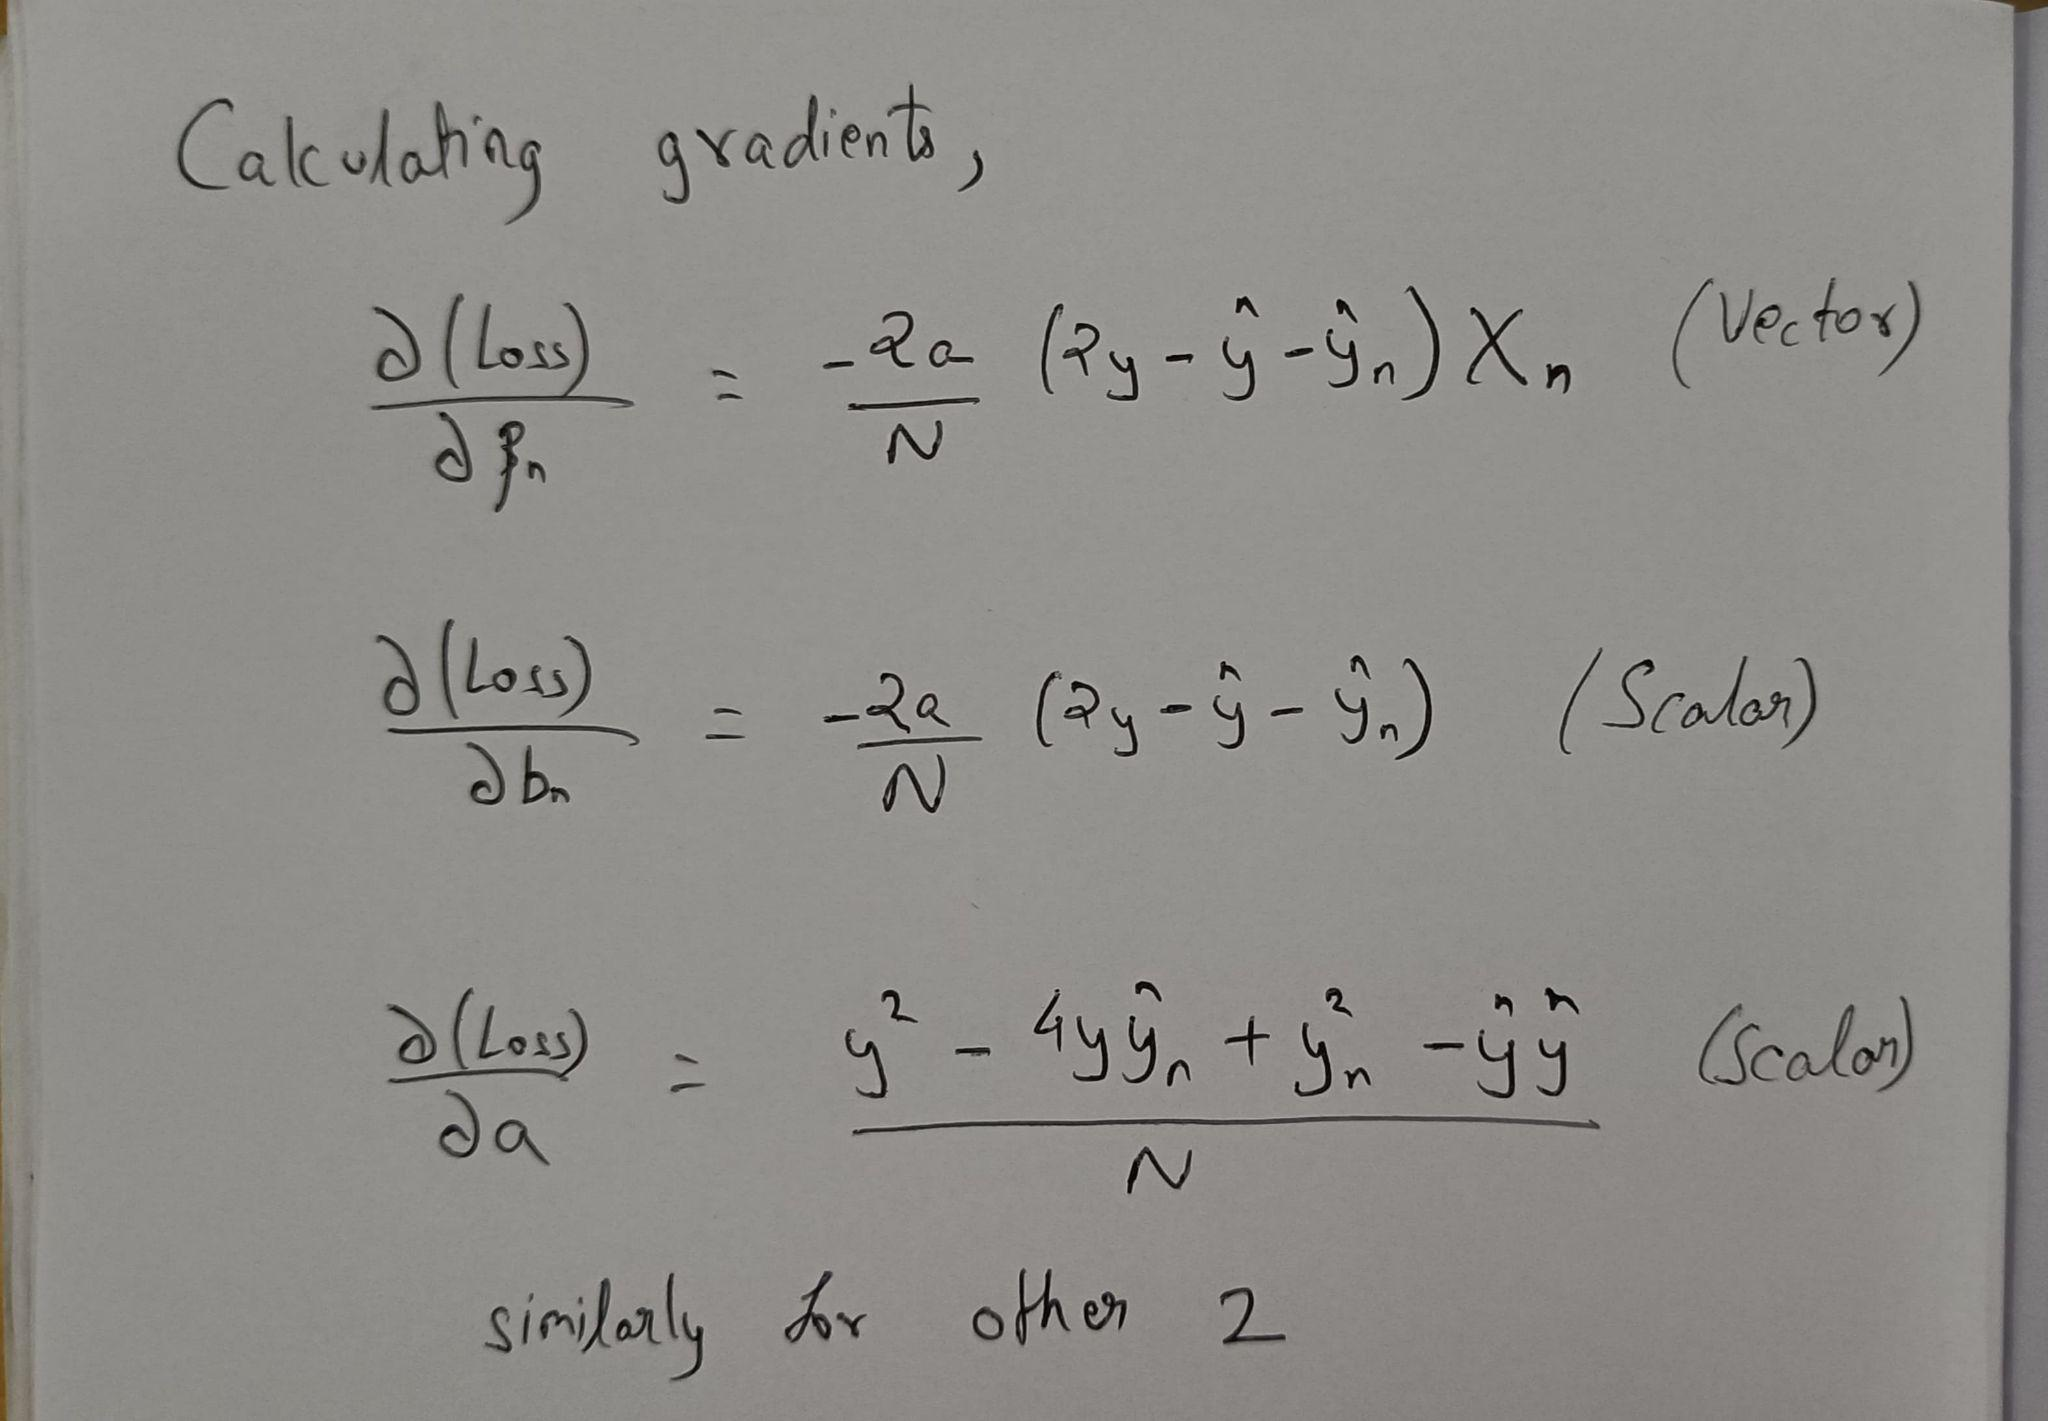 Calculating gradients,
∂(Loss)/∂βn = -2a/N (2y - ŷ - ŷn) Xn (Vector)
∂(Loss)/∂bn = -2a/N (2y - ŷ - ŷn) (Scalar)
∂(Loss)/∂a = (y² - 4yŷn + ŷn² - ŷŷ)/N (Scalar)
similarly for other 2